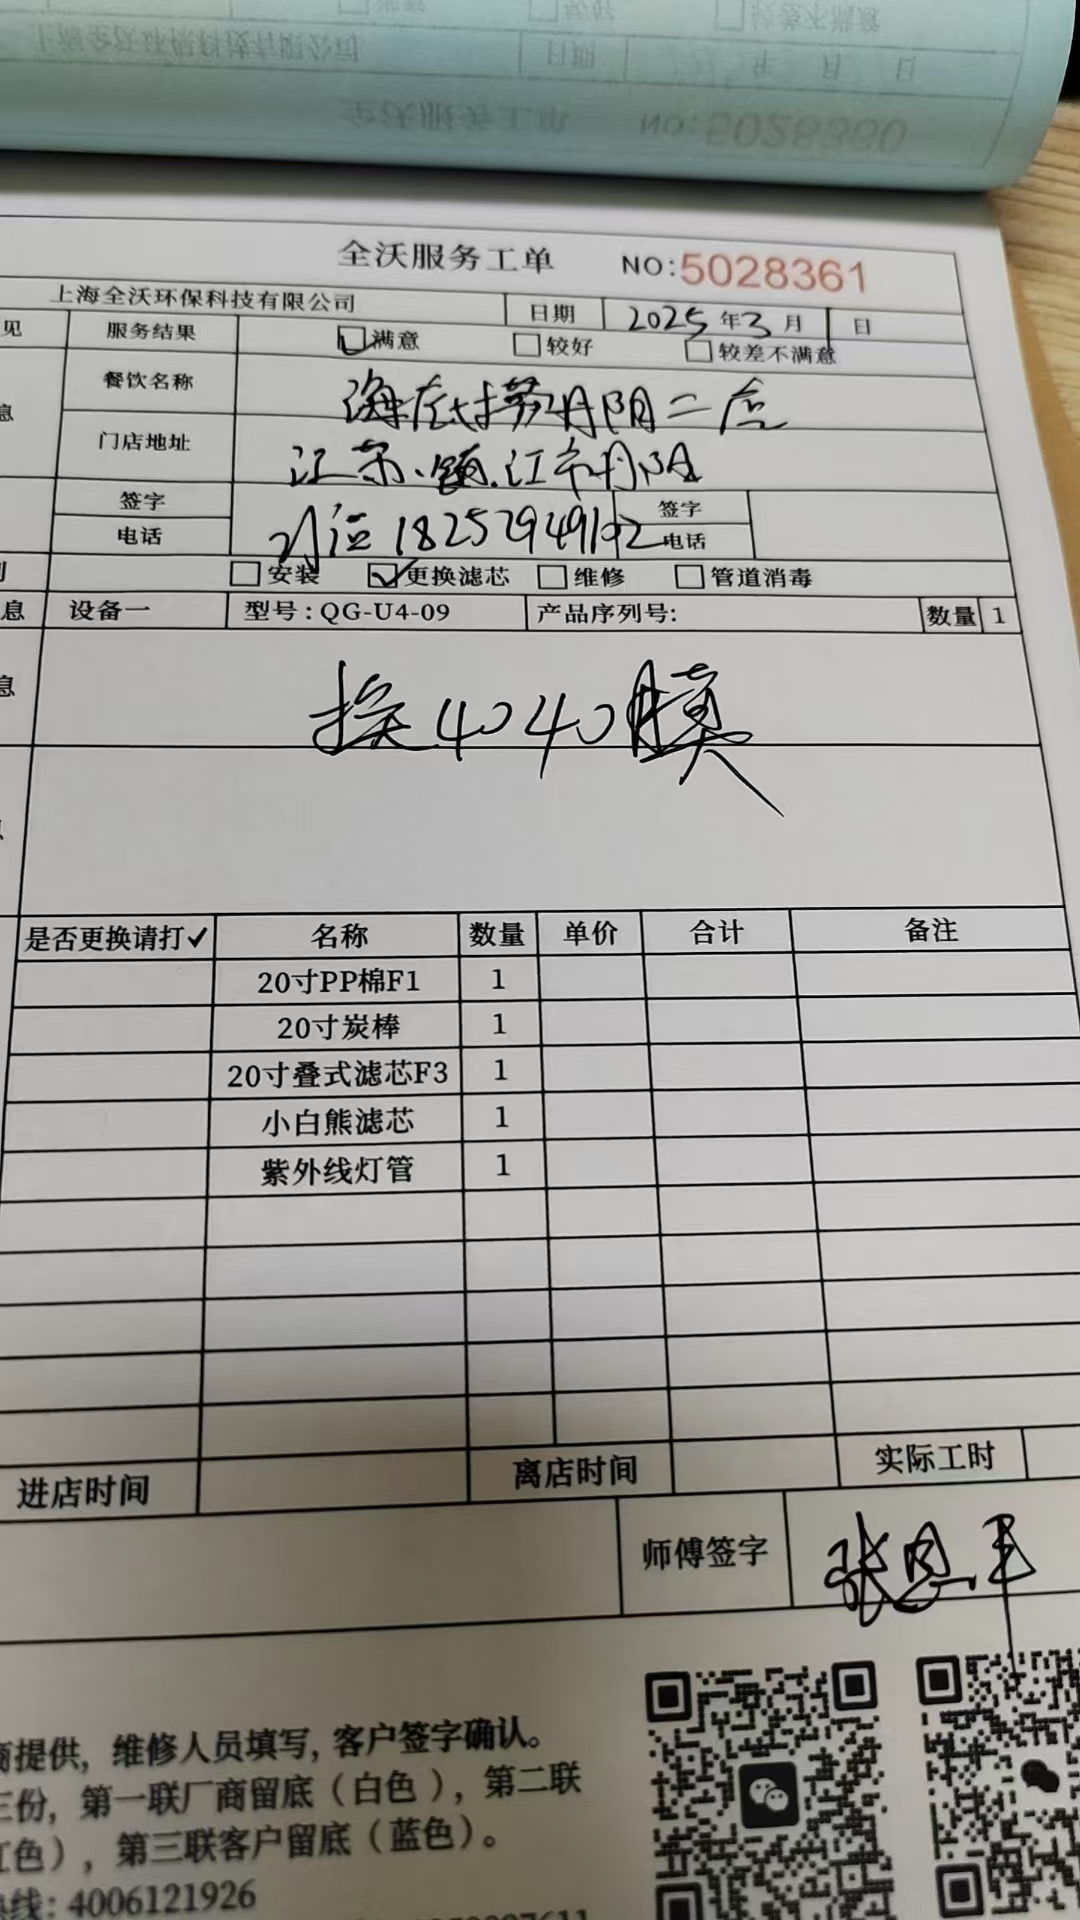 全沃服务工单 NO:5028361
上海全沃环保科技有限公司 日期 2025年3月 日
见 服务结果 满意 较好 较差不满意
息 餐饮名称 海底捞丹阳二店
门店地址 江苏.镇江市丹阳
签字 签字
电话 电话
安装 更换滤芯 维修 管道消毒
息 设备一 型号:QG-U4-09 产品序列号: 数量 1
息 换4040膜
是否更换请打✓ 名称 数量 单价 合计 备注
20寸PP棉F1 1
20寸炭棒 1
20寸叠式滤芯F3 1
小白熊滤芯 1
紫外线灯管 1
进店时间 离店时间 实际工时
师傅签字
商提供, 维修人员填写, 客户签字确认。
三份, 第一联厂商留底（白色）, 第二联
红色）, 第三联客户留底（蓝色）。
热线: 4006121926